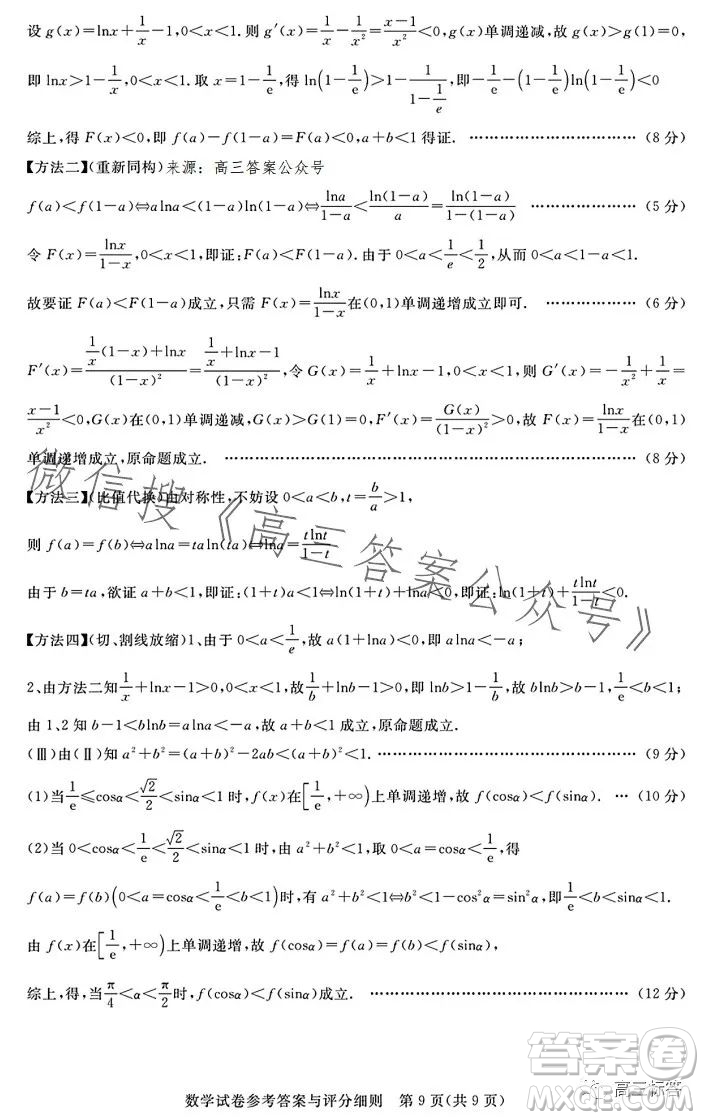 设 g(x)=lnx+1/x-1,0<x<1.则 g′(x)=1/x-1/x²=(x-1)/x²<0,g(x)单调递减,故 g(x)>g(1)=0,
即 lnx>1-1/x,0<x<1.取 x=1-1/e,得 ln(1-1/e)>1-1/(1-1/e),即-1/e-(1-1/e)ln(1-1/e)<0
综上,得 F(x)<0,即 f(a)-f(1-a)=F(a)<0,a+b<1 得证. ……………………………(8 分)
【方法二】(重新同构)来源:高三答案公众号
f(a)<f(1-a)⇔alna<(1-a)ln(1-a)⇔lna/(1-a)<ln(1-a)/a=ln(1-a)/(1-(1-a)) …………………(5 分)
令 F(x)=lnx/(1-x),0<x<1,即证:F(a)<F(1-a).由于 0<a<1/e<1/2,从而 0<a<1-a<1.
故要证 F(a)<F(1-a)成立,只需 F(x)=lnx/(1-x)在(0,1)单调递增成立即可. ………………(6 分)
F′(x)=(1/x(1-x)+lnx)/(1-x)²=(1/x+lnx-1)/(1-x)²,令 G(x)=1/x+lnx-1,0<x<1,则 G′(x)=-1/x²+1/x=
(x-1)/x²<0,G(x)在(0,1)单调递减,G(x)>G(1)=0,F′(x)=G(x)/(1-x)²>0,故 F(x)=lnx/(1-x)在(0,1)
单调递增成立,原命题成立. ……………………………………………………(8 分)
【方法三】(比值代换)由对称性,不妨设 0<a<b,t=b/a>1,
则 f(a)=f(b)⇔alna=taln(ta)⇔lna=tlnt/(1-t)
由于 b=ta,欲证 a+b<1,即证:(1+t)a<1⇔ln(1+t)+lna<0,即证:ln(1+t)+tlnt/(1-t)<0.
【方法四】(切、割线放缩)1、由于 0<a<1/e,故 a(1+lna)<0,即 alna<-a;
2、由方法二知1/x+lnx-1>0,0<x<1,故1/b+lnb-1>0,故 blnb>b-1,1/e<b<1;
由 1、2 知 b-1<blnb=alna<-a,故 a+b<1 成立,原命题成立.
(Ⅲ)由(Ⅱ)知 a²+b²=(a+b)²-2ab<(a+b)²<1. ……………………………………(9 分)
(1)当1/e≤cosα<√2/2<sinα<1 时,f(x)在[1/e,+∞)上单调递增,故 f(cosα)<f(sinα). …(10 分)
(2)当 0<cosα<1/e<√2/2<sinα<1 时,由 a²+b²<1,取 0<a=cosα<1/e,得
f(a)=f(b)(0<a=cosα<1/e<b<1)时,有 a²+b²<1⇔b²<1-cos²α=sin²α,即1/e<b<sinα<1.
由 f(x)在[1/e,+∞)上单调递增,故 f(cosα)=f(a)=f(b)<f(sinα),
综上,得,当π/4<α<π/2时,f(cosα)<f(sinα)成立. ……………………………………(12 分)
微信搜《高三答案公众号》
答案圈
高三标答
MXQE.COM
数学试卷参考答案与评分细则 第 9 页(共 9 页)